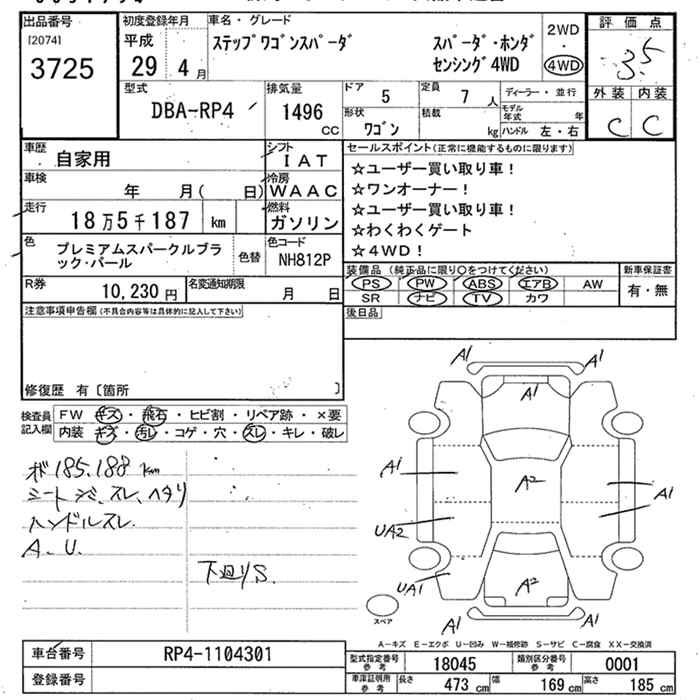 出品番号
[2074]
3725
初度登録年月
平成
29年 4月
車名・グレード
ステップワゴンスパーダ
スパーダ・ホンダ
センシング4WD
2WD
・
4WD
評価点
3.5
外装 内装
C C
型式
DBA-RP4
排気量
1496
cc
ドア 5
定員 7人
形状 ワゴン
積載 kg
ディーラー・並行
モデル年式 年
ハンドル 左・右
車歴 自家用
シフト
IAT
車検 年 月( 日)
冷房
WAAC
走行 18万5千187 km
燃料
ガソリン
色 プレミアムスパークルブラック・パール
色替
色コード
NH812P
R券 10,230円
名変通知期限 月 日
セールスポイント(正常に機能するものに限ります)
☆ユーザー買い取り車!
☆ワンオーナー!
☆ユーザー買い取り車!
☆わくわくゲート
☆4WD!
装備品 (純正品に限り○をつけてください)
PS PW ABS エアB AW
SR ナビ TV カワ
新車保証書
有・無
後日品
注意事項申告欄(不具合内容等は具体的に記入して下さい)
修復歴 有〔箇所 〕
検査員
記入欄
FW キズ・飛石・ヒビ割・リペア跡・×要
内装 キズ・汚レ・コゲ・穴・スレ・キレ・破レ
ボ185.188km
シート シミ、スレ、ヘタリ
ハンドルスレ
A、U.
下廻りS.
A1 A1
A1
A1
A2
A1
UA2
UA1
A2
A1 A1
スペア
A-キズ E-エクボ U-凹み W-補修跡 S-サビ C-腐食 XX-交換済
車台番号 RP4-1104301
登録番号
型式指定番号 参考 18045
類別区分番号 参考 0001
車庫証明用 参考 長さ 473cm 幅 169cm 高さ 185cm